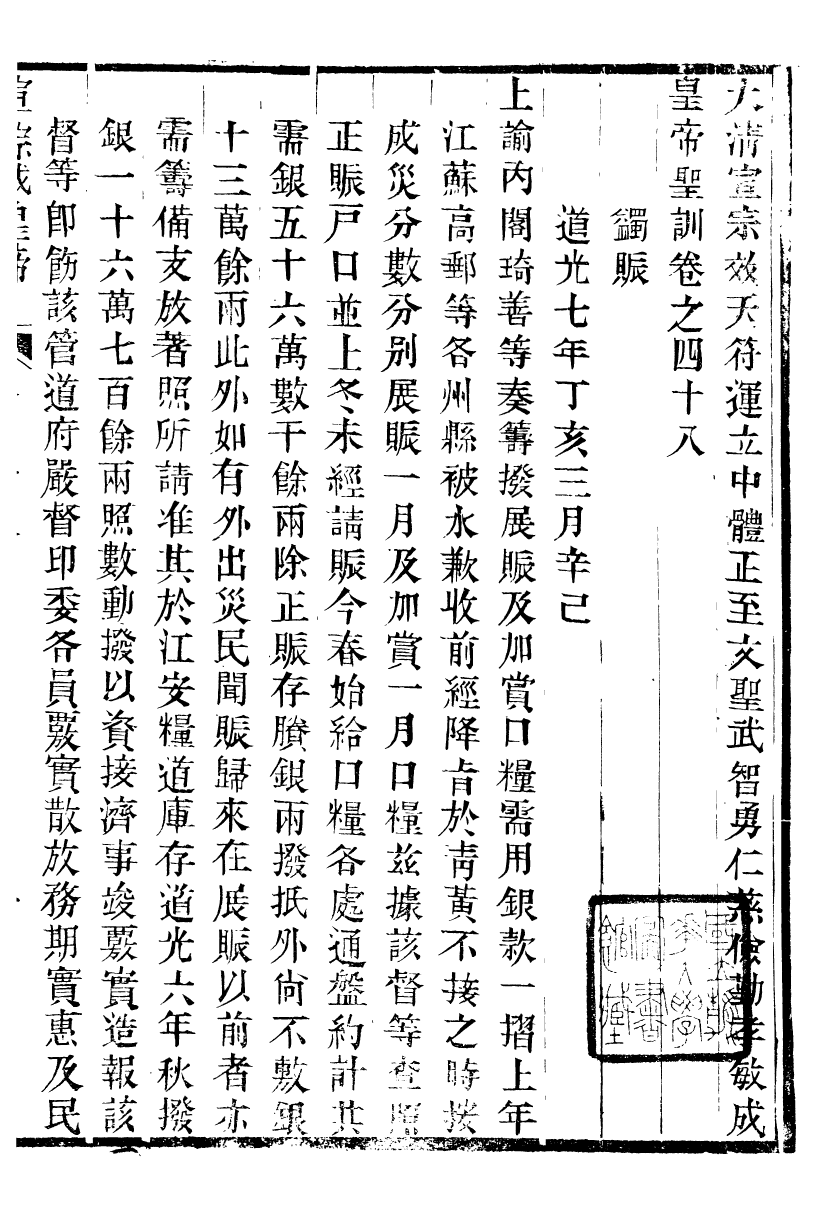 大清宣宗效天符運立中體正至文聖武智勇仁慈儉勤孝敏成
皇帝聖訓卷之四十八
蠲賑
道光七年丁亥三月辛己
上諭內閣琦善等奏籌撥展賑及加賞口糧需用銀款一摺上年
江蘇高郵等各州縣被水歉收前經降旨於靑黃不接之時按
成災分數分別展賑一月及加賞一月口糧茲據該督等查照
正賑戶口並上冬未經請賑今春始給口糧各處通盤約計共
需銀五十六萬數千餘兩除正賑存賸銀兩撥抵外尙不敷銀
十三萬餘兩此外如有外出災民聞賑歸來在展賑以前者亦
需籌備支放著照所請准其於江安糧道庫存道光六年秋撥
銀一十六萬七百餘兩照數動撥以資接濟事竣覈實造報該
督等卽飭該管道府嚴督印委各員覈實散放務期實惠及民
宣宗成皇帝